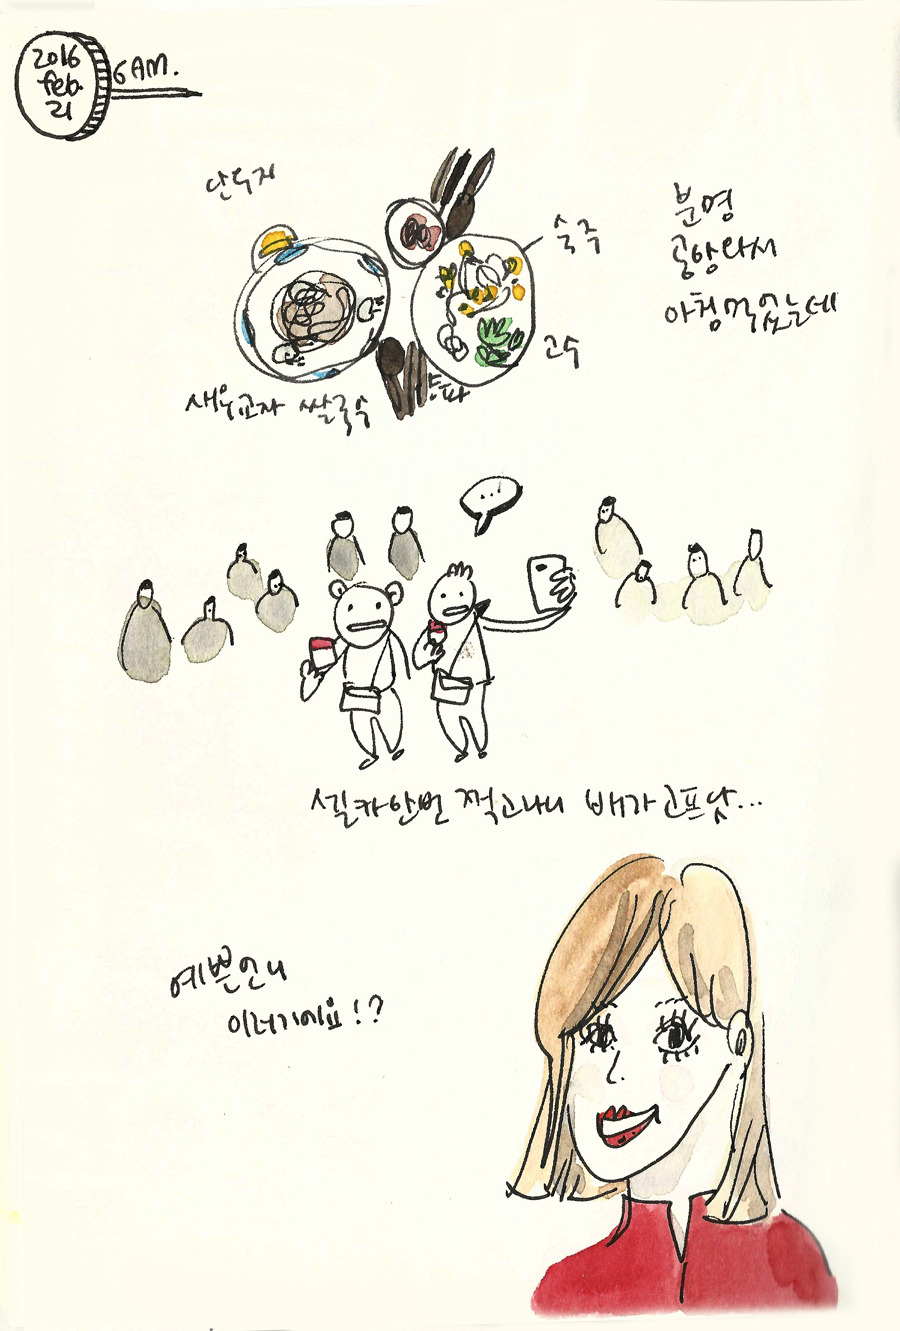 2016
feb.
21
6 AM.
단무지
숙주
분명
공항라서
아침먹었는데
고수
새우교자 쌀국수
셀카한번 찍고나니 배가고프닷...
예쁜언니
이러기에요!?